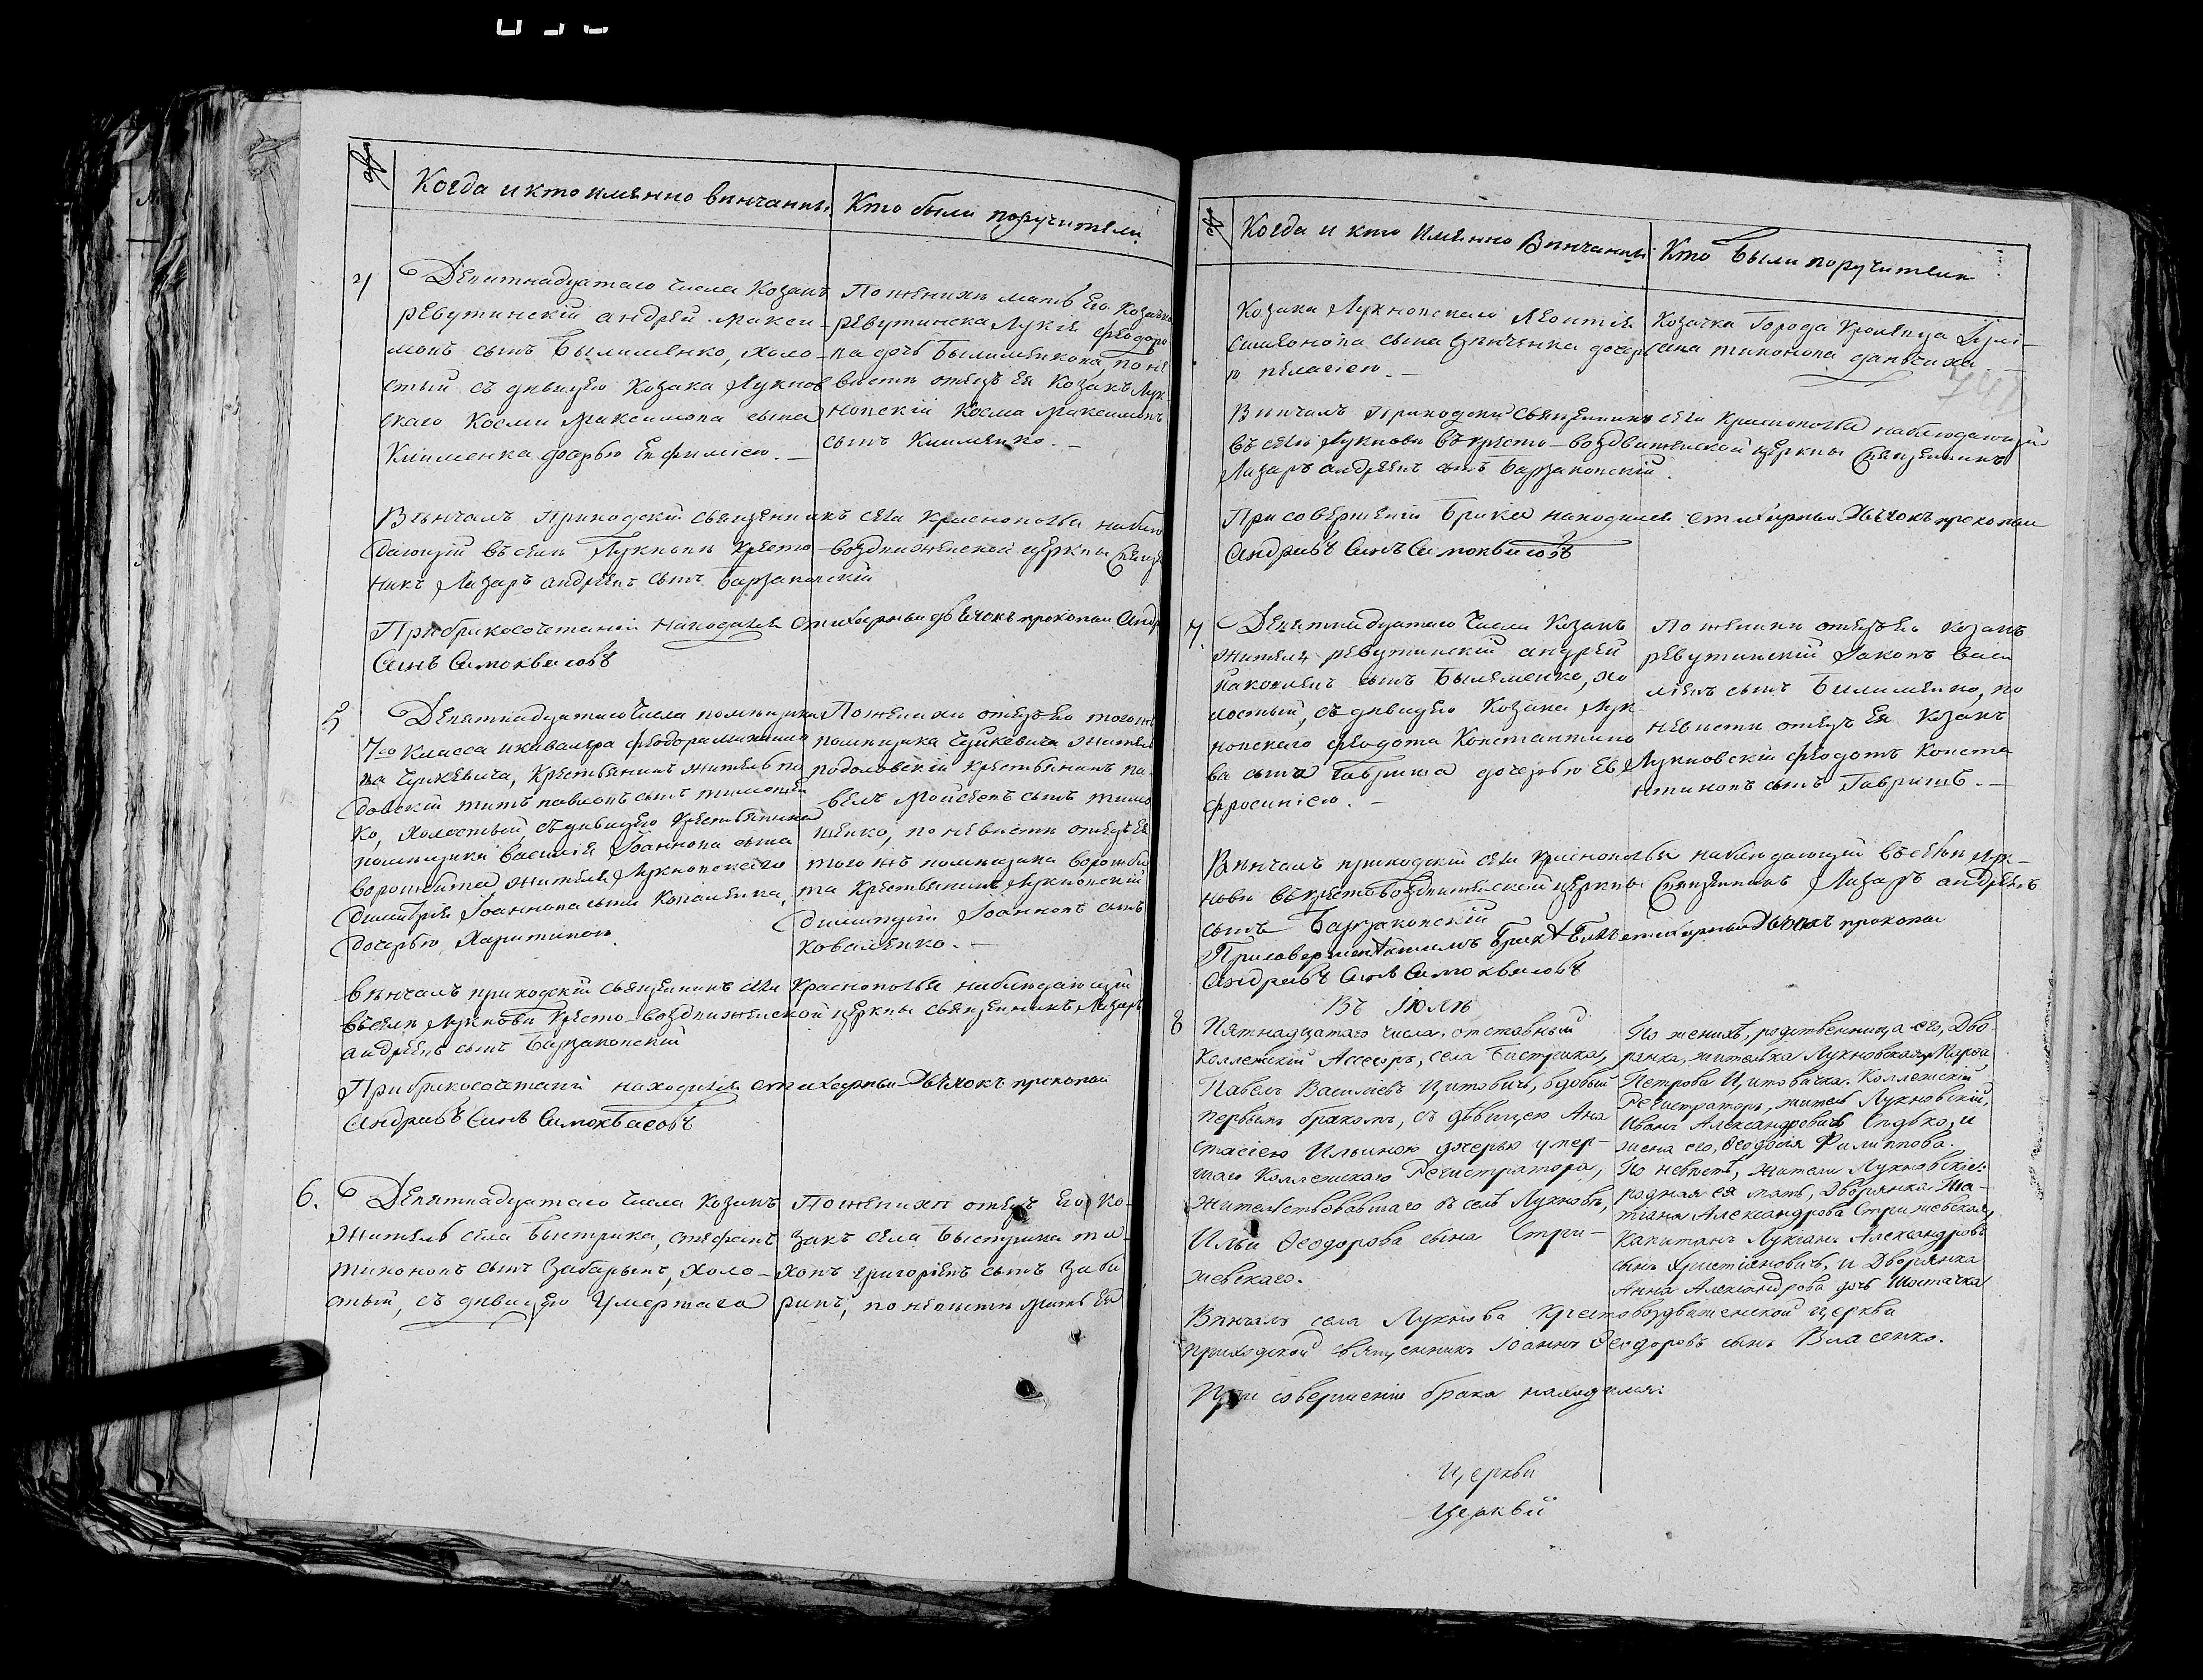 № Когда и кто имянно венчаны. Кто были поручители
4
Девятнадцатаго числа Козакъ
ревутинскій андрей макси-
мовъ сынъ Былименко, холо-
стый съ девицею Козака Лукнов
скаго Космы Максимова сына
Клименка дочерью Евфиміею. —
По женихи мать его Козачка
ревутинска Лукія феодоро
ва дочь Былименкова, по не
висти отецъ ея Козакъ Лук-
новскій Косма Максимовъ
сынъ Клименко. —
Венчалъ приходскій священникъ села Краснополья наблю
дающій въ селе Лукнови кресто-воздвиженской церкви Священ
никъ Лазарь андреевъ сынъ Барзаковскій
При бракосочетаніи находился стихарный дьячокъ прокопій Андр
Синъ Самоквасовъ
5
Девятнадцатаго Числа помещика
7го Класса икавалера феодора михаило
ва Чужкевича, Крестьянинъ житель по
довскій титъ павловъ сынъ тимошен
ко, холостый, съ девицею крестьянина
помещика василія Іоаннова сына
ворожбита жителя Лукновскаго
димитрія Іоаннова сына Коваленка,
дочерью Харитиною.
По женихи отецъ его того жъ
помещика Чужкевича житель
подоловскій крестьянинъ па-
велъ Мойсеевъ сынъ тимо
шенко, по невисти отецъ ея
того жъ помещика ворожби
та Крестьянинъ Лукновскій
димитрій Іоанновъ сынъ
Коваленко. —
венчалъ приходскій священникъ села Краснополья наблюдающій
въ селе Лукнови Кресто-воздвиженской церкви священникъ Лазарь
андреевъ сынъ Барзаковскій
При бракосочетаніи находился стихарный Дьячокъ прокопій
Андриевъ Синъ Самоквасовъ
6.
Девятнадцатаго Числа Козакъ
житель села Быстрика, стефанъ
тихоновъ сынъ Забаринъ, холо-
стый, съ девицею Умершаго
По женихи отецъ Его Ко-
закъ села Быстрика ти-
хонъ григоріевъ сынъ Заба
ринъ, по невисти мать Ея
№ Когда и кто Имянно Венчаны Кто Были поручители
Козака Лукновскаго Леонтія
симеонова сына дочер
ю пелагіею. —
Козачка Города Кролевца Іулі-
ана тихонова —
Венчалъ Приходскій Священникъ села Краснополья наблюдающій
въ селе Лукнови въ кресто-воздвиженской церкви Священникъ
Лазарь андреевъ сынъ Барзаковскій.
При совершеніи Брака находился стихарный Дьячокъ прокопій
Андриевъ Синъ Самоквасовъ
7.
Девятнадцатаго Числа Козакъ
житель ревутинскій андрей
Іаковлевъ сынъ Былименко, хо
лостый, съ девицею Козака Лук-
новскаго феодота Константино
ва сына Гавриша дочерью Ев
фросиніею. —
По женихи отецъ его козакъ
ревутинскій Іаковъ васи
ліевъ сынъ Билименко, по
невисти отецъ ея Козакъ
Лукновскій феодотъ Конста
нтиновъ сынъ Гавришъ. —
Венчалъ приходскій села Краснополья наблюдающій въ селе Лук-
нови въ кресто воздвиженской церкви Священникъ Лазарь андреевъ
сынъ Барзаковскій
Присовершеніи Брака стихарный Дьячокъ прокопій
Андриевъ Синъ Самоквасовъ
Въ Іюле
8
Пятнадцатаго числа, отставный
Коллежскій Ассесоръ, села Бистрика,
Павелъ Василіевъ Цитовичъ, вдовый
первымъ бракомъ, съ девицею Ана
стасіею Ильиною дочерью умер-
шаго Коллежскаго Регистратора,
жительствовавшаго въ селе Лукнове,
Ильи Феодорова сына Стри-
жевскаго.
По жениху, родственница его, Дво-
рянка, жителька Лукновская, Марфа
Петрова Цитовичка. Коллежскій
Регистраторъ, житель Лукновскій,
Иванъ Александровичъ Сидько, и
жена его, Феодосія Филиппова.
По невесте, жители Лукновскіе:
родная ея мать, Дворянка Та-
тіана Александрова Стрижевская,
Капитанъ Лукіанъ Александровъ
сынъ Христіановичъ, и Дворянка
Анна Александрова дочь Шостачка
Венчалъ села Лукнова Крестовоздвиженской церкви
приходской священникъ Іоаннъ Феодоровъ сынъ Власенко.
При совершеніи брака находился:
Церкви
Церквы